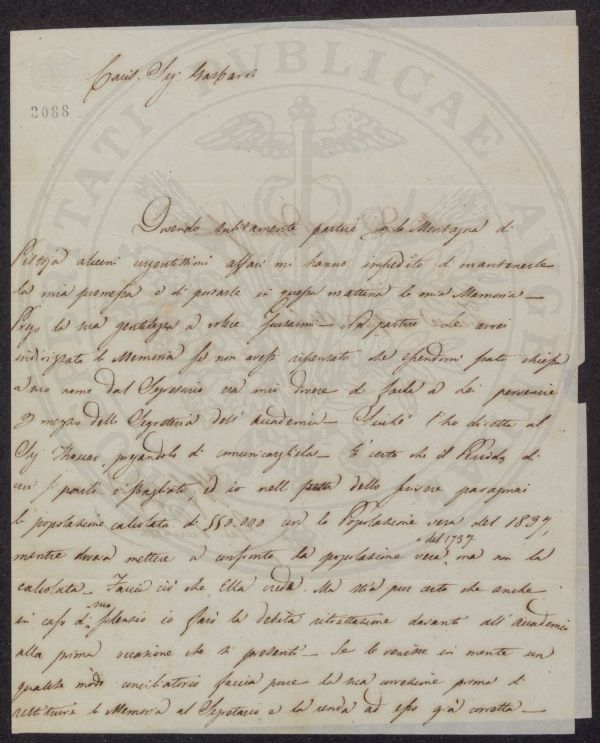 2088
Dovendo subitamente partire per la Montagna di
Pistoja alcuni urgentissimi affari mi hanno impedito di mantenerle
la mia promessa e di portarle in questa mattina la mia Memoria —
Prego la sua gentilezza a volere scusarmi — Nel partire Le avrei
indirizzata la Memoria se non avessi ripensato che essendomi stata chiesta
a suo nome dal Segretario era mio dovere di farla a Lei pervenire
per mezzo della Segreteria dell' Accademia — Sicchè l'ho diretta al
Sig. Thouar, pregandolo di comunicargliela — È certo che il Periodo di
cui si parlò è sbagliato, ed io nella dello scrivere paragonai
la popolazione calcolata di 550.000 con la Popolazione vera del 1837,
mentre doveva mettere a confronto la popolazione vera del 1737. ma non la
calcolata — Faccia ciò che Ella crede. Ma stia pur certo che anche
in caso di suo silenzio io farò la debita rettificazione davanti all' Accademia
alla prima occasione che si presenti — Se le venisse in mente un
qualche modo conciliatorio faccia pure la sua correzione prima di
restituire la Memoria al Segretario e la renda ad esso già corretta —